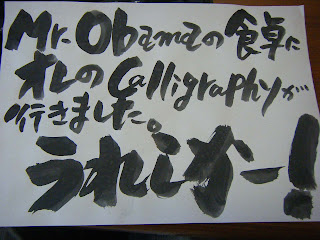 Mr. Obamaの食卓に
オレのCalligraphyが
行きました。
うれしかー!